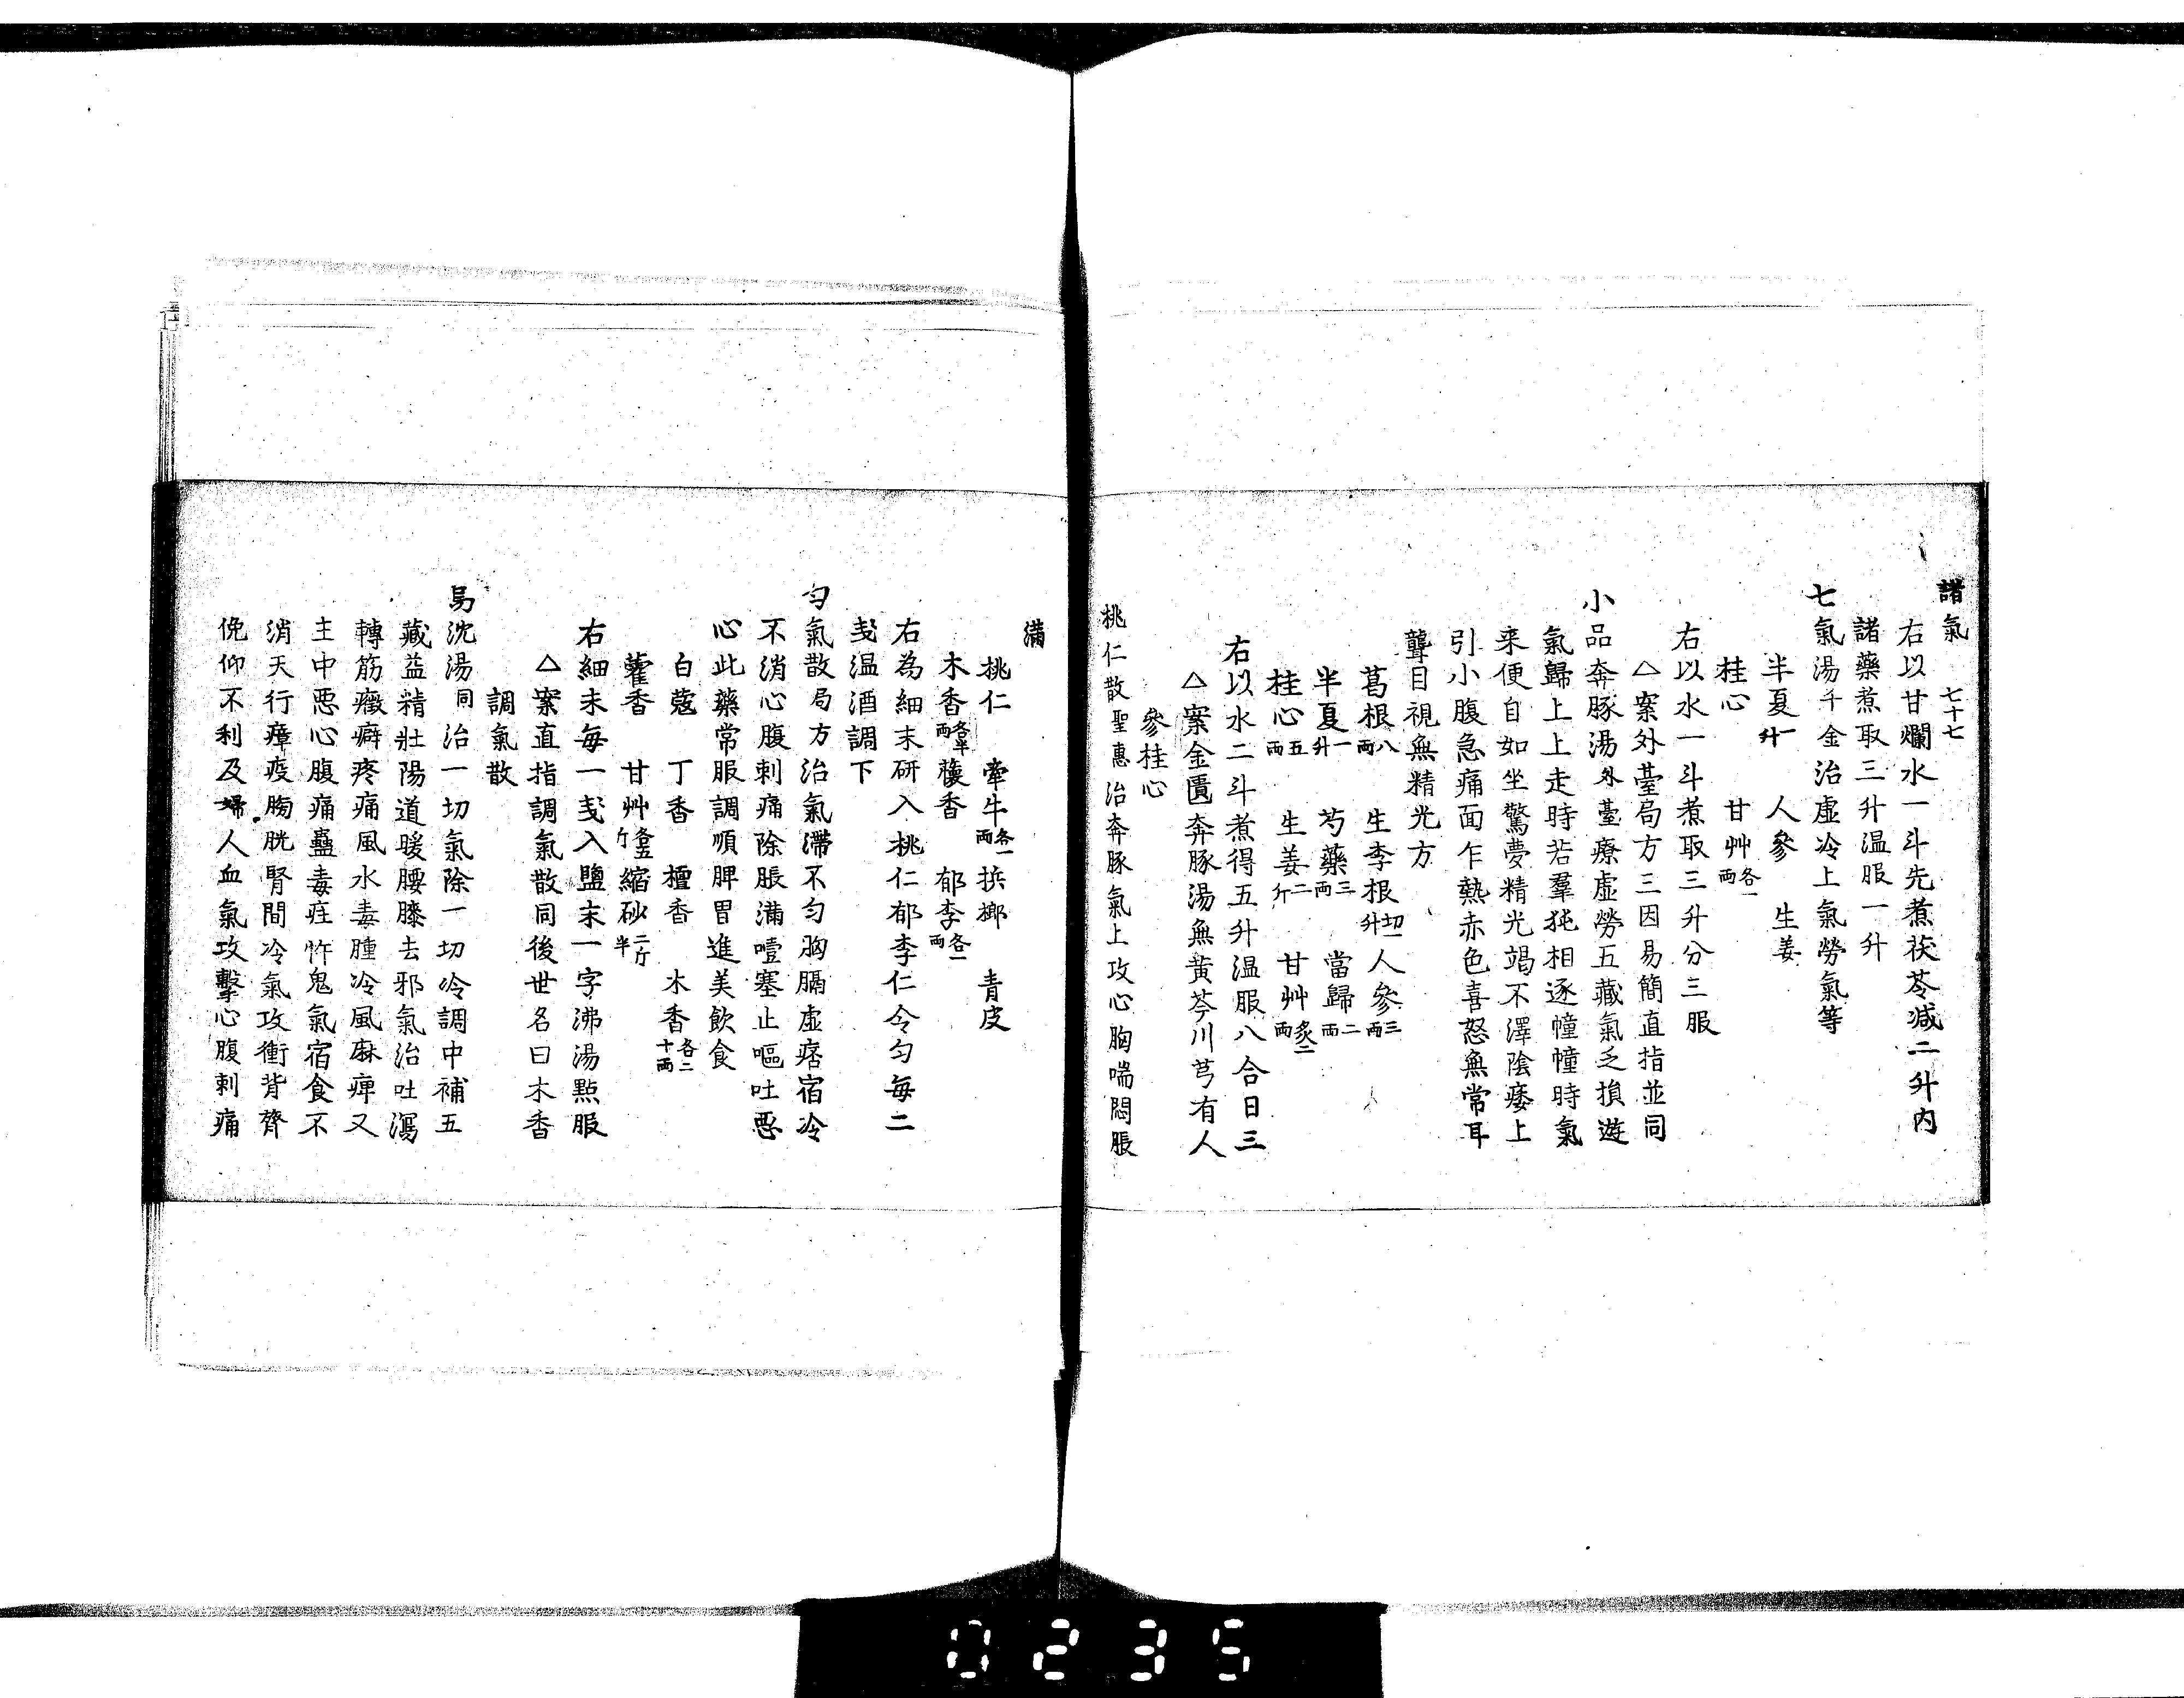 諸氣 七十七
右以甘爛水一斗先煮茯苓減二升內
諸藥煮取三升温服一升
七氣湯千金治虛冷上氣勞氣等
半夏一升 人參 生姜
桂心 甘艸各一兩
右以水一斗煮取三升分三服
△案外臺局方三因易簡直指並同
小品奔豚湯外臺療虛勞五藏氣乏損遊
氣歸上上走時若羣㹠相逐憧憧時氣
来便自如坐驚夢精光竭不澤陰痿上
引小腹急痛面乍熱赤色喜怒無常耳
聾目視無精光方
葛根八兩 生李根切一升 人參三兩
半夏一升 芍藥三兩 當歸二兩
桂心五兩 生姜二斤 甘艸炙二兩
右以水二斗煮得五升温服八合日三
△案金匱奔豚湯無黃芩川芎有人
參桂心
桃仁散聖惠治奔豚氣上攻心胸喘悶脹
滿
桃仁 牽牛各一兩 梹榔 青皮
木香各半兩 蘹香 郁李各一兩
右為細末研入桃仁郁李仁令匀每二
戔温酒調下
匀氣散局方治氣滯不匀胸膈虛痞宿冷
不消心腹刺痛除脹滿噎塞止嘔吐惡
心此藥常服調順脾胃進美飲食
白蔻 丁香 檀香 木香各二十兩
藿香 甘艸各五斤 縮砂二斤半
右細末每一戔入鹽末一字沸湯點服
△案直指調氣散同後世名曰木香
調氣散
易沈湯同治一切氣除一切冷調中補五
藏益精壯陽道暖腰膝去邪氣治吐瀉
轉筋癥癖疼痛風水毒腫冷風麻痺又
主中惡心腹痛蠱毒疰忤鬼氣宿食不
消天行瘴疫胸胱腎間冷氣攻衝背膂
俛仰不利及婦人血氣攻擊心腹刺痛
0235